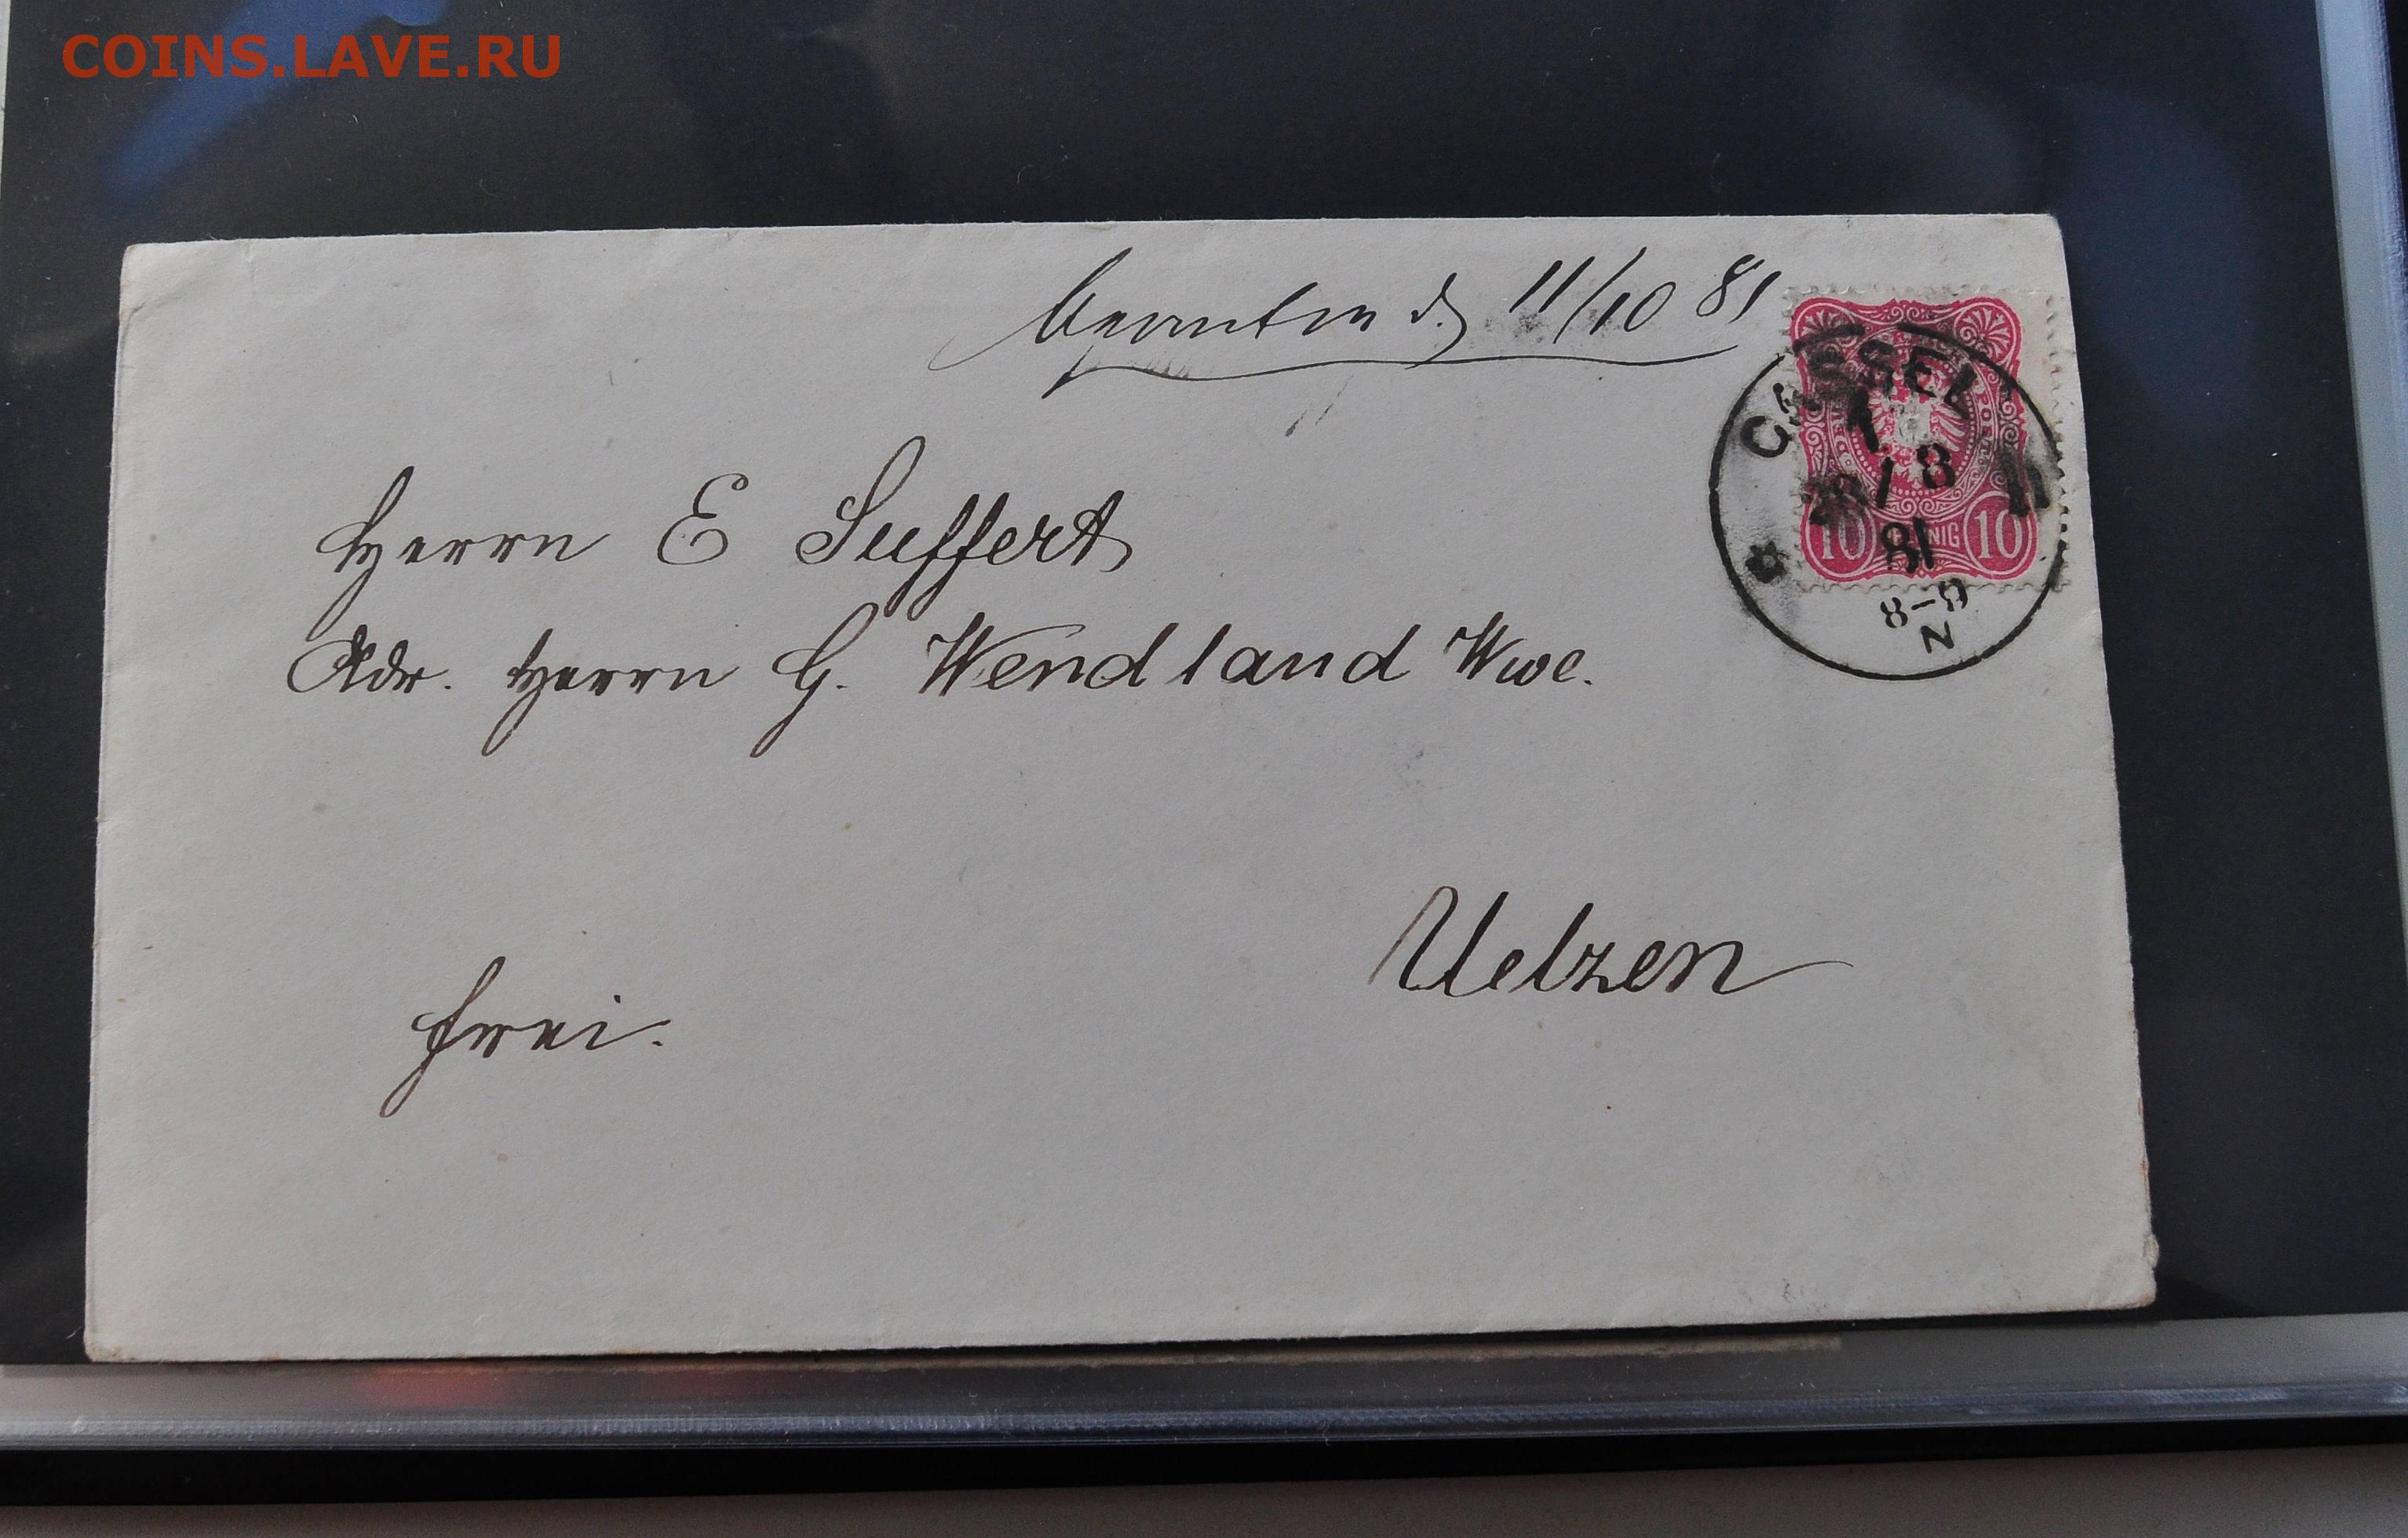 COINS.LAVE.RU
11/10 81
CASSEL
1
8
81
8-9
N
10 10
Herrn E Suffert
Adr. Herrn G. Wendland Wwe.
Uelzen
frei.